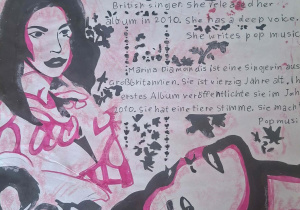 British singer. She released her
album in 2010. She has a deep voice.
She writes pop music
Marina Diamandis ist eine Singerin aus
Großbritannien. Sie ist vierzig Jahre alt. I
erstes Album veröffentlichte sie im Jah
2010. Sie hat eine tiefe Stimme. Sie mach
Pop musi